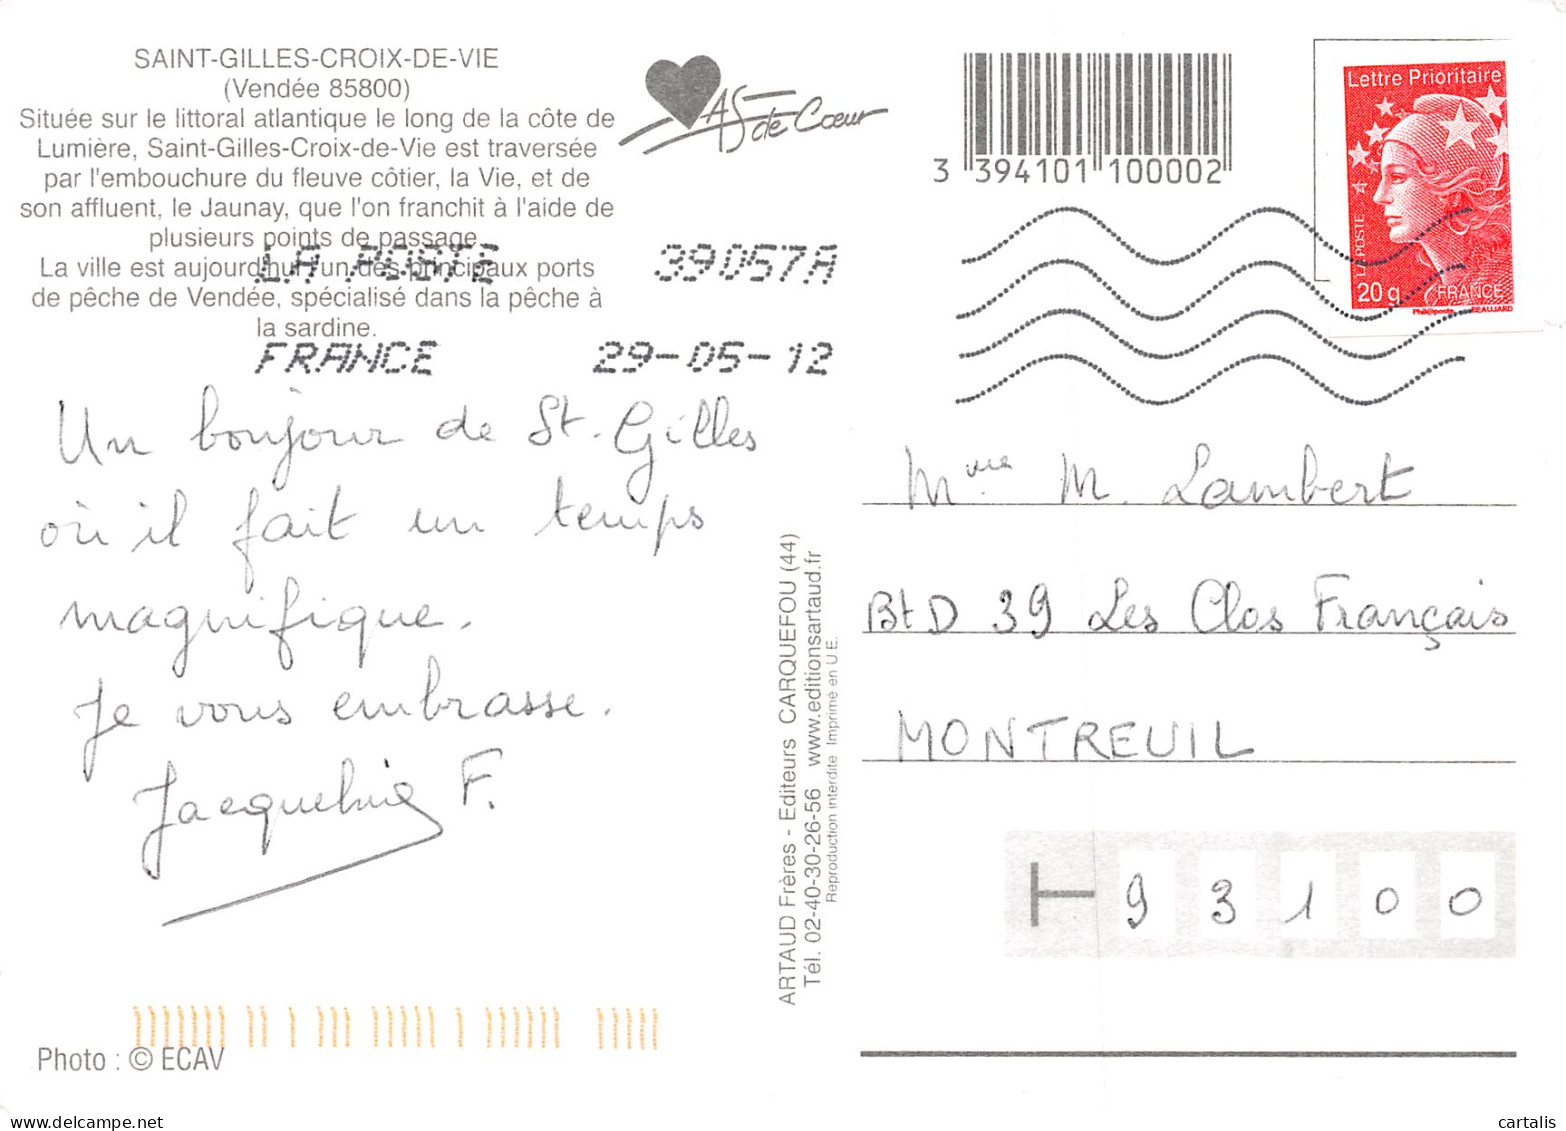 SAINT-GILLES-CROIX-DE-VIE
(Vendée 85800)
Située sur le littoral atlantique le long de la côte de
Lumière, Saint-Gilles-Croix-de-Vie est traversée
par l'embouchure du fleuve côtier, la Vie, et de
son affluent, le Jaunay, que l'on franchit à l'aide de
plusieurs points de passage.
La ville est aujourd'hui un des principaux ports
de pêche de Vendée, spécialisé dans la pêche à
la sardine.
AS de Coeur
3 394101 100002
Lettre Prioritaire
LA POSTE
20 g FRANCE
Phil@poste BEAUJARD
LA POSTE 39057A
FRANCE 29-05-12
Un bonjour de St. Gilles
où il fait un temps
magnifique.
Je vous embrasse.
Jacqueline F.
ARTAUD Frères - Editeurs CARQUEFOU (44)
Tél. 02-40-30-26-56 www.editionsartaud.fr
Reproduction interdite Imprimé en U.E.
Mme M. Lambert
Bt D 39 Les Clos Français
MONTREUIL
93100
Photo : © ECAV
cartalis